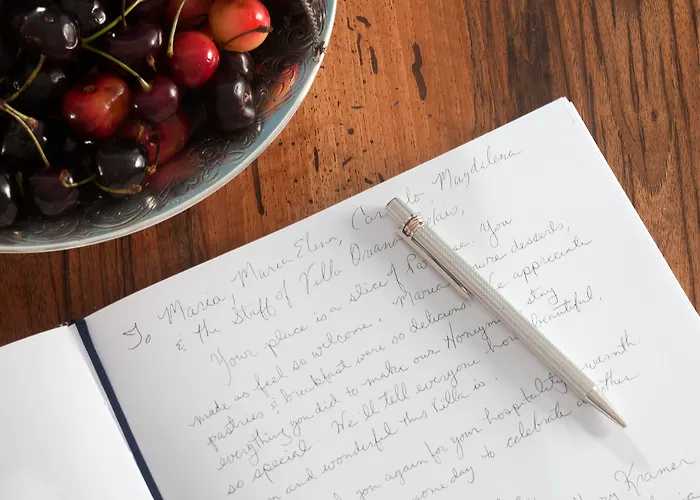 To Maria, Maria Elena, Magdilena
& the Staff of Villa
Your place is a slice of You
made us feel so welcome. Maria desserts,
pastries & breakfast were so delicious. We appreciate
everything you did to make our Honeymoon stay
so special. We'll tell everyone how beautiful,
and wonderful this Villa is.
you again for your hospitality & warmth.
someday to celebrate another
Kramer